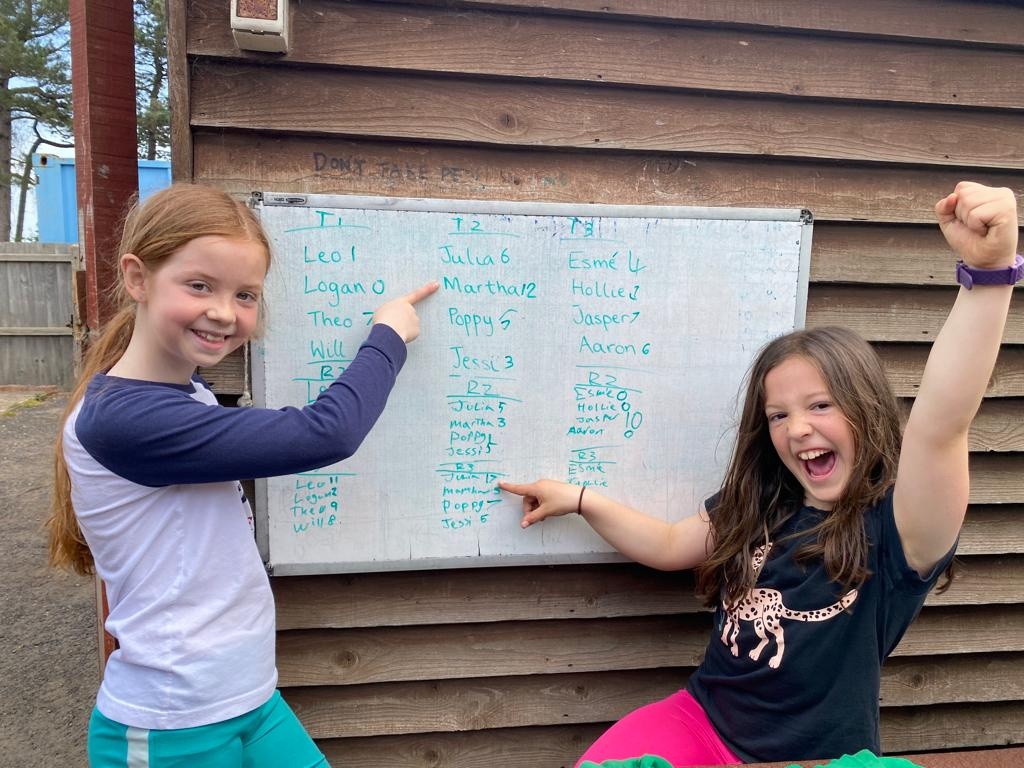 DON'T TAKE
T1
Leo 1
Logan 0
Theo 7
Will
R2
Leo 11
Logan 2
Theo 9
Will 8
T2
Julia 6
Martha 12
Poppy 5
Jessi 3
R2
Julia 5
Martha 3
Poppy
Jessi 5
R3
Julia
Martha
Poppy 7
Jessi 6
T3
Esmé 4
Hollie 1
Jasper 7
Aaron 6
R2
Esmé 0
Hollie 0
Jasper 10
Aaron 0
R3
Esmé